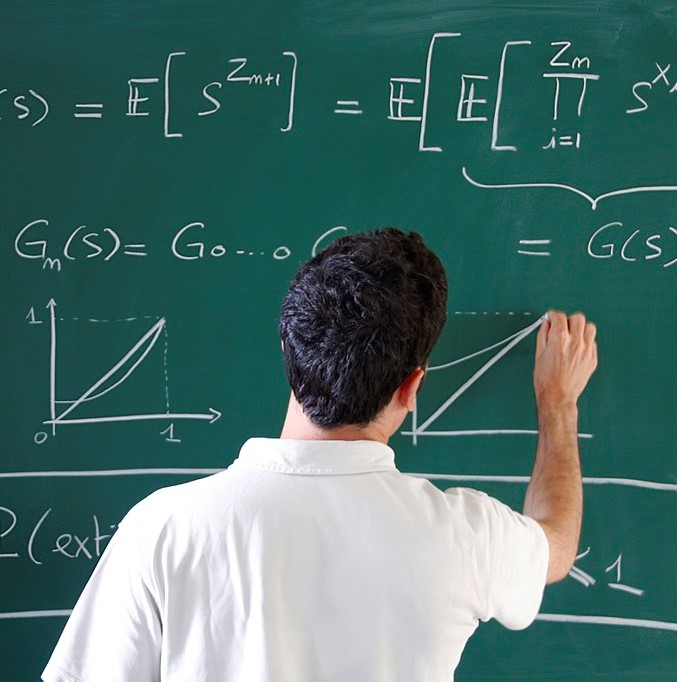 (s) = 𝔼[ S^{Z_{m+1}} ] = 𝔼[ 𝔼[ ∏_{i=1}^{Z_m} S^X
G_m(S) = G∘...∘ = G(S)
1
0 1
(exti < 1